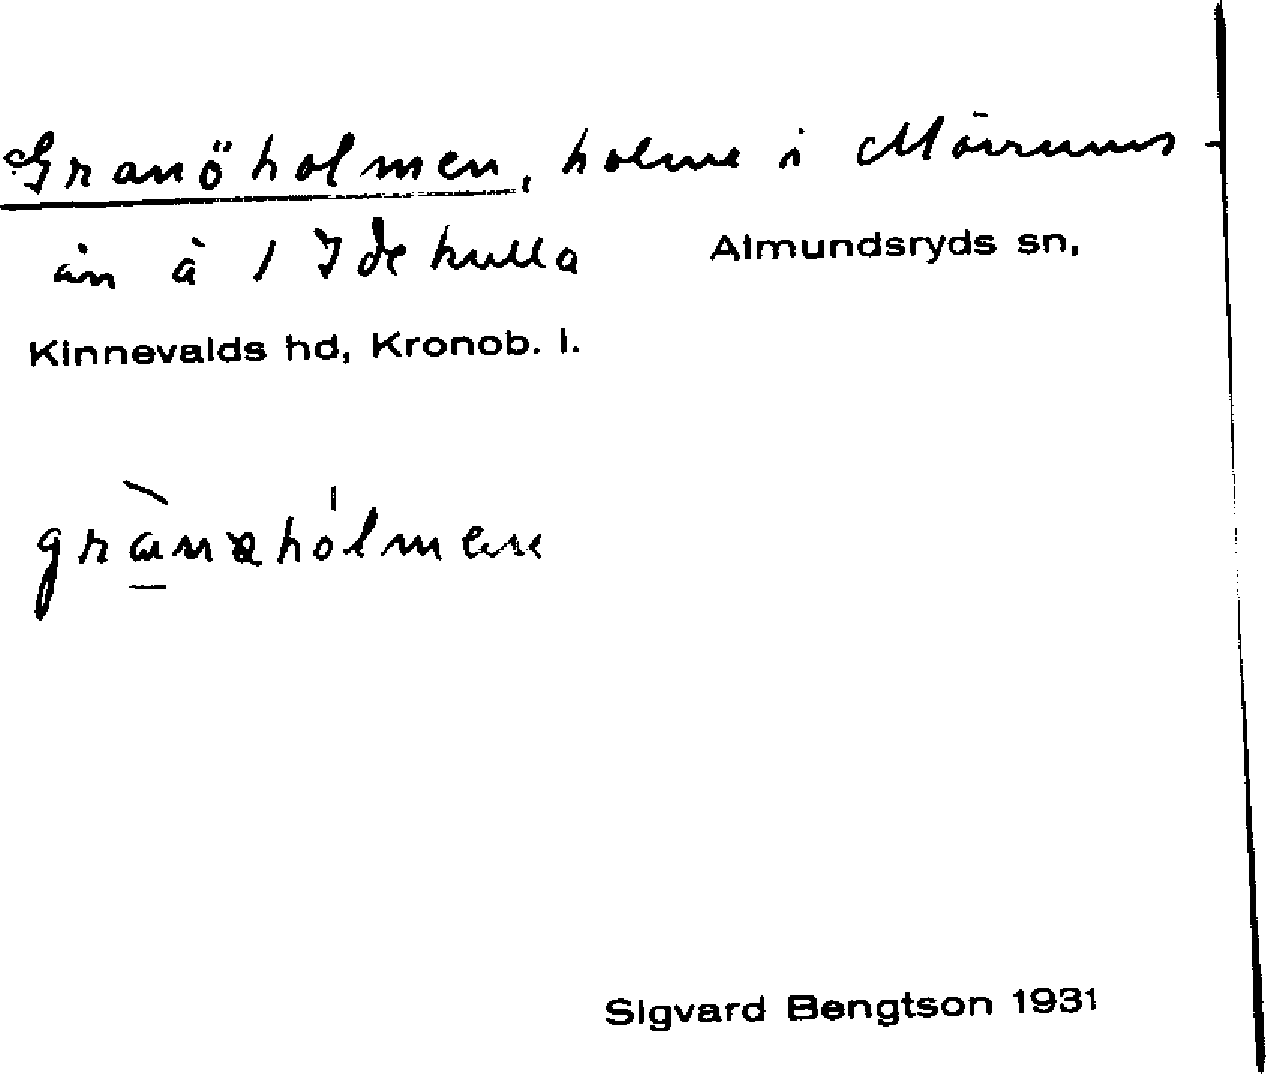 Granöholmen, holme i Mörrums-
ån å 1 Idehulla Almundsryds sn,
Kinnevalds hd, Kronob. l.
grànəhólmen
Sigvard Bengtson 1931